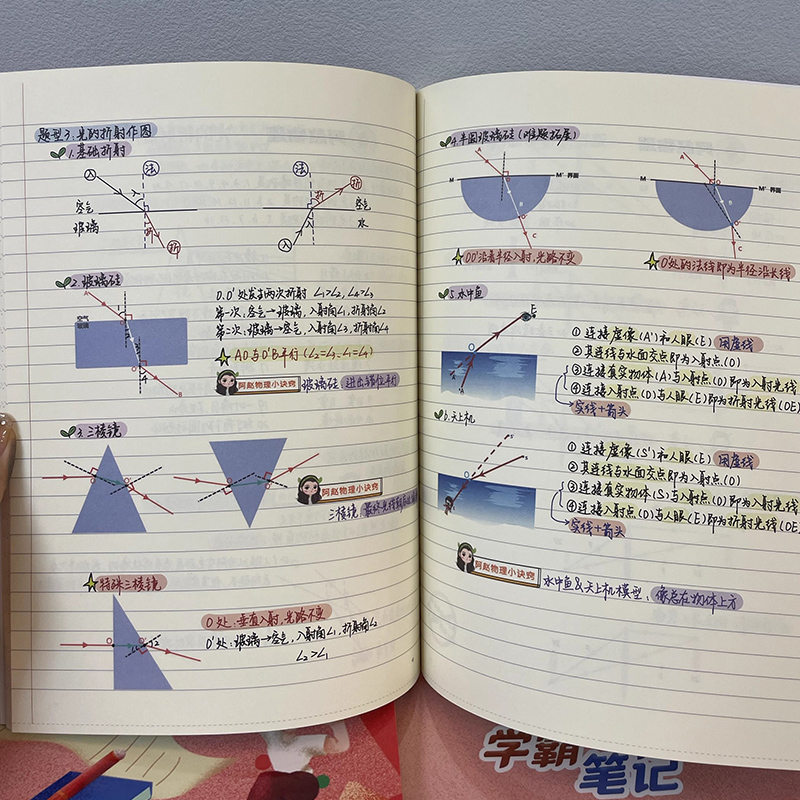 题型3:光的折射作图
1.基础折射
入 法
空气
玻璃
折
法 折
空气
水
入
2.玻璃砖
A
空气
玻璃
B
O.O'处发生两次折射 ∠1>∠2,∠4>∠3
第一次:空气→玻璃,入射角∠1,折射角∠2
第二次:玻璃→空气,入射角∠3,折射角∠4
AO与O'B平行(∠2=∠3,∠1=∠4)
阿赵物理小诀窍
玻璃砖,进出错位平行
3.三棱镜
阿赵物理小诀窍
三棱镜
特殊三棱镜
O O'
1 2
O处:垂直入射,光路不变
O'处:玻璃→空气,入射角∠1,折射角∠2
∠2>∠1
4.半圆玻璃砖(难题拓展)
A
M M' 界面
O
B
C
OO'沿着半径入射,光路不变
A
M M' 界面
O
B
C
O处的法线即为半径延长线
5.水中鱼
E
O
A'
A
①连接虚像(A')和人眼(E)用虚线
②其连线与水面交点即为入射点(O)
③连接真实物体(A)与入射点(O)即为入射光线
④连接入射点(O)与人眼(E)即为折射光线(OE)
实线+箭头
6.天上机
S'
S
①连接虚像(S')和人眼(E)用虚线
②其连线与水面交点即为入射点(O)
③连接真实物体(S)与入射点(O)即为入射光线
④连接入射点(O)与人眼(E)即为折射光线(OE)
实线+箭头
阿赵物理小诀窍
水中鱼&天上机模型,像总在物体上方
学霸
笔记